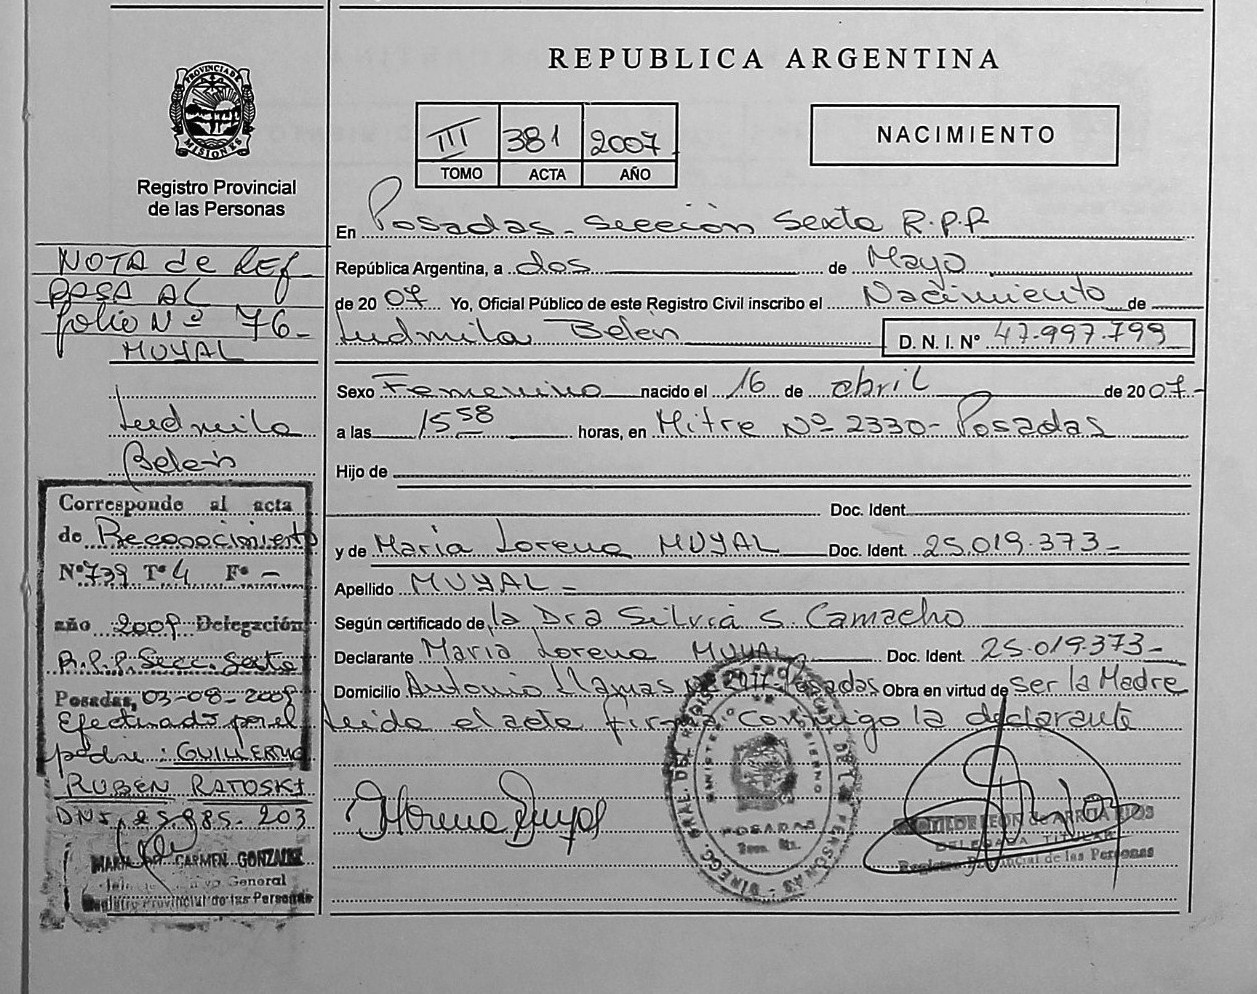 REPUBLICA ARGENTINA
PROVINCIA DE
MISIONES
Registro Provincial
de las Personas
III 381 2007.
TOMO ACTA AÑO
NACIMIENTO
En Posadas - Sección Sexta R.P.P
República Argentina, a dos de Mayo
de 2007 Yo, Oficial Público de este Registro Civil inscribo el Nacimiento de
Ludmila Belén D. N. I. Nº 47.997.799
Sexo Femenino nacido el 16 de abril de 2007-
a las 15 58 horas, en Mitre Nº 2330- Posadas
Hijo de
Doc. Ident.
y de María Lorena MUYAL Doc. Ident. 25.019.373-
Apellido MUYAL -
Según certificado de la Dra Silvia S. Camacho
Declarante María Lorena MUYAL Doc. Ident. 25.019.373-
Domicilio Antonio Llamas Posadas Obra en virtud de ser la Madre
Leída el acta firma conmigo la declarante
NOTA de REF
PASA AL
folio Nº 76-
MUYAL
Ludmila
Belén
Corresponde al acta
de Reconocimiento
Nº 739 Tº 4 Fº -
año 2009 Delegación
R.P.P. Secc. Sexta
Posadas, 03-08-2009
Efectuado por el
padre: GUILLERMO
RUBEN RATOSKI
DNI. 25.985.203
CARMEN GONZALEZ
General
Registro Provincial de las Personas
MINISTERIO DE GOBIERNO
POSADAS
LEON de ARRIA
DELEGADA TITULAR
Registro Provincial de las Personas